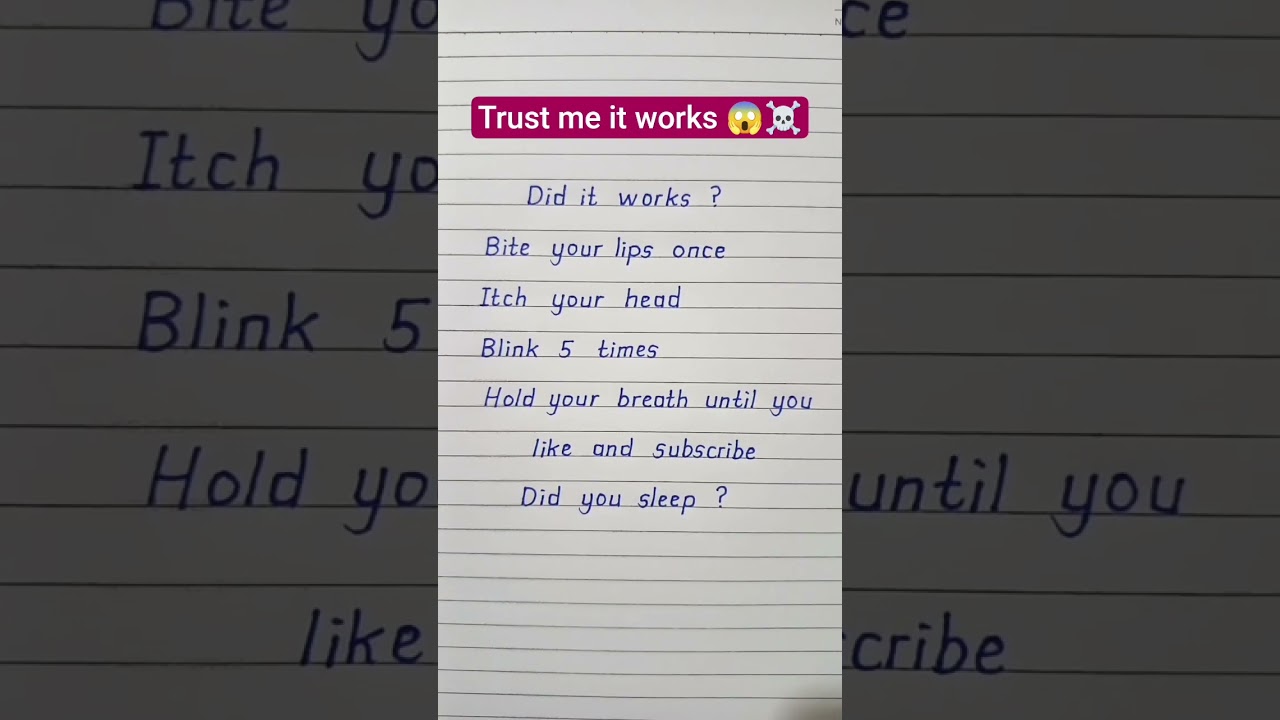 Trust me it works 😱☠️
Did it works ?
Bite your lips once
Itch your head
Blink 5 times
Hold your breath until you
like and subscribe
Did you sleep ?